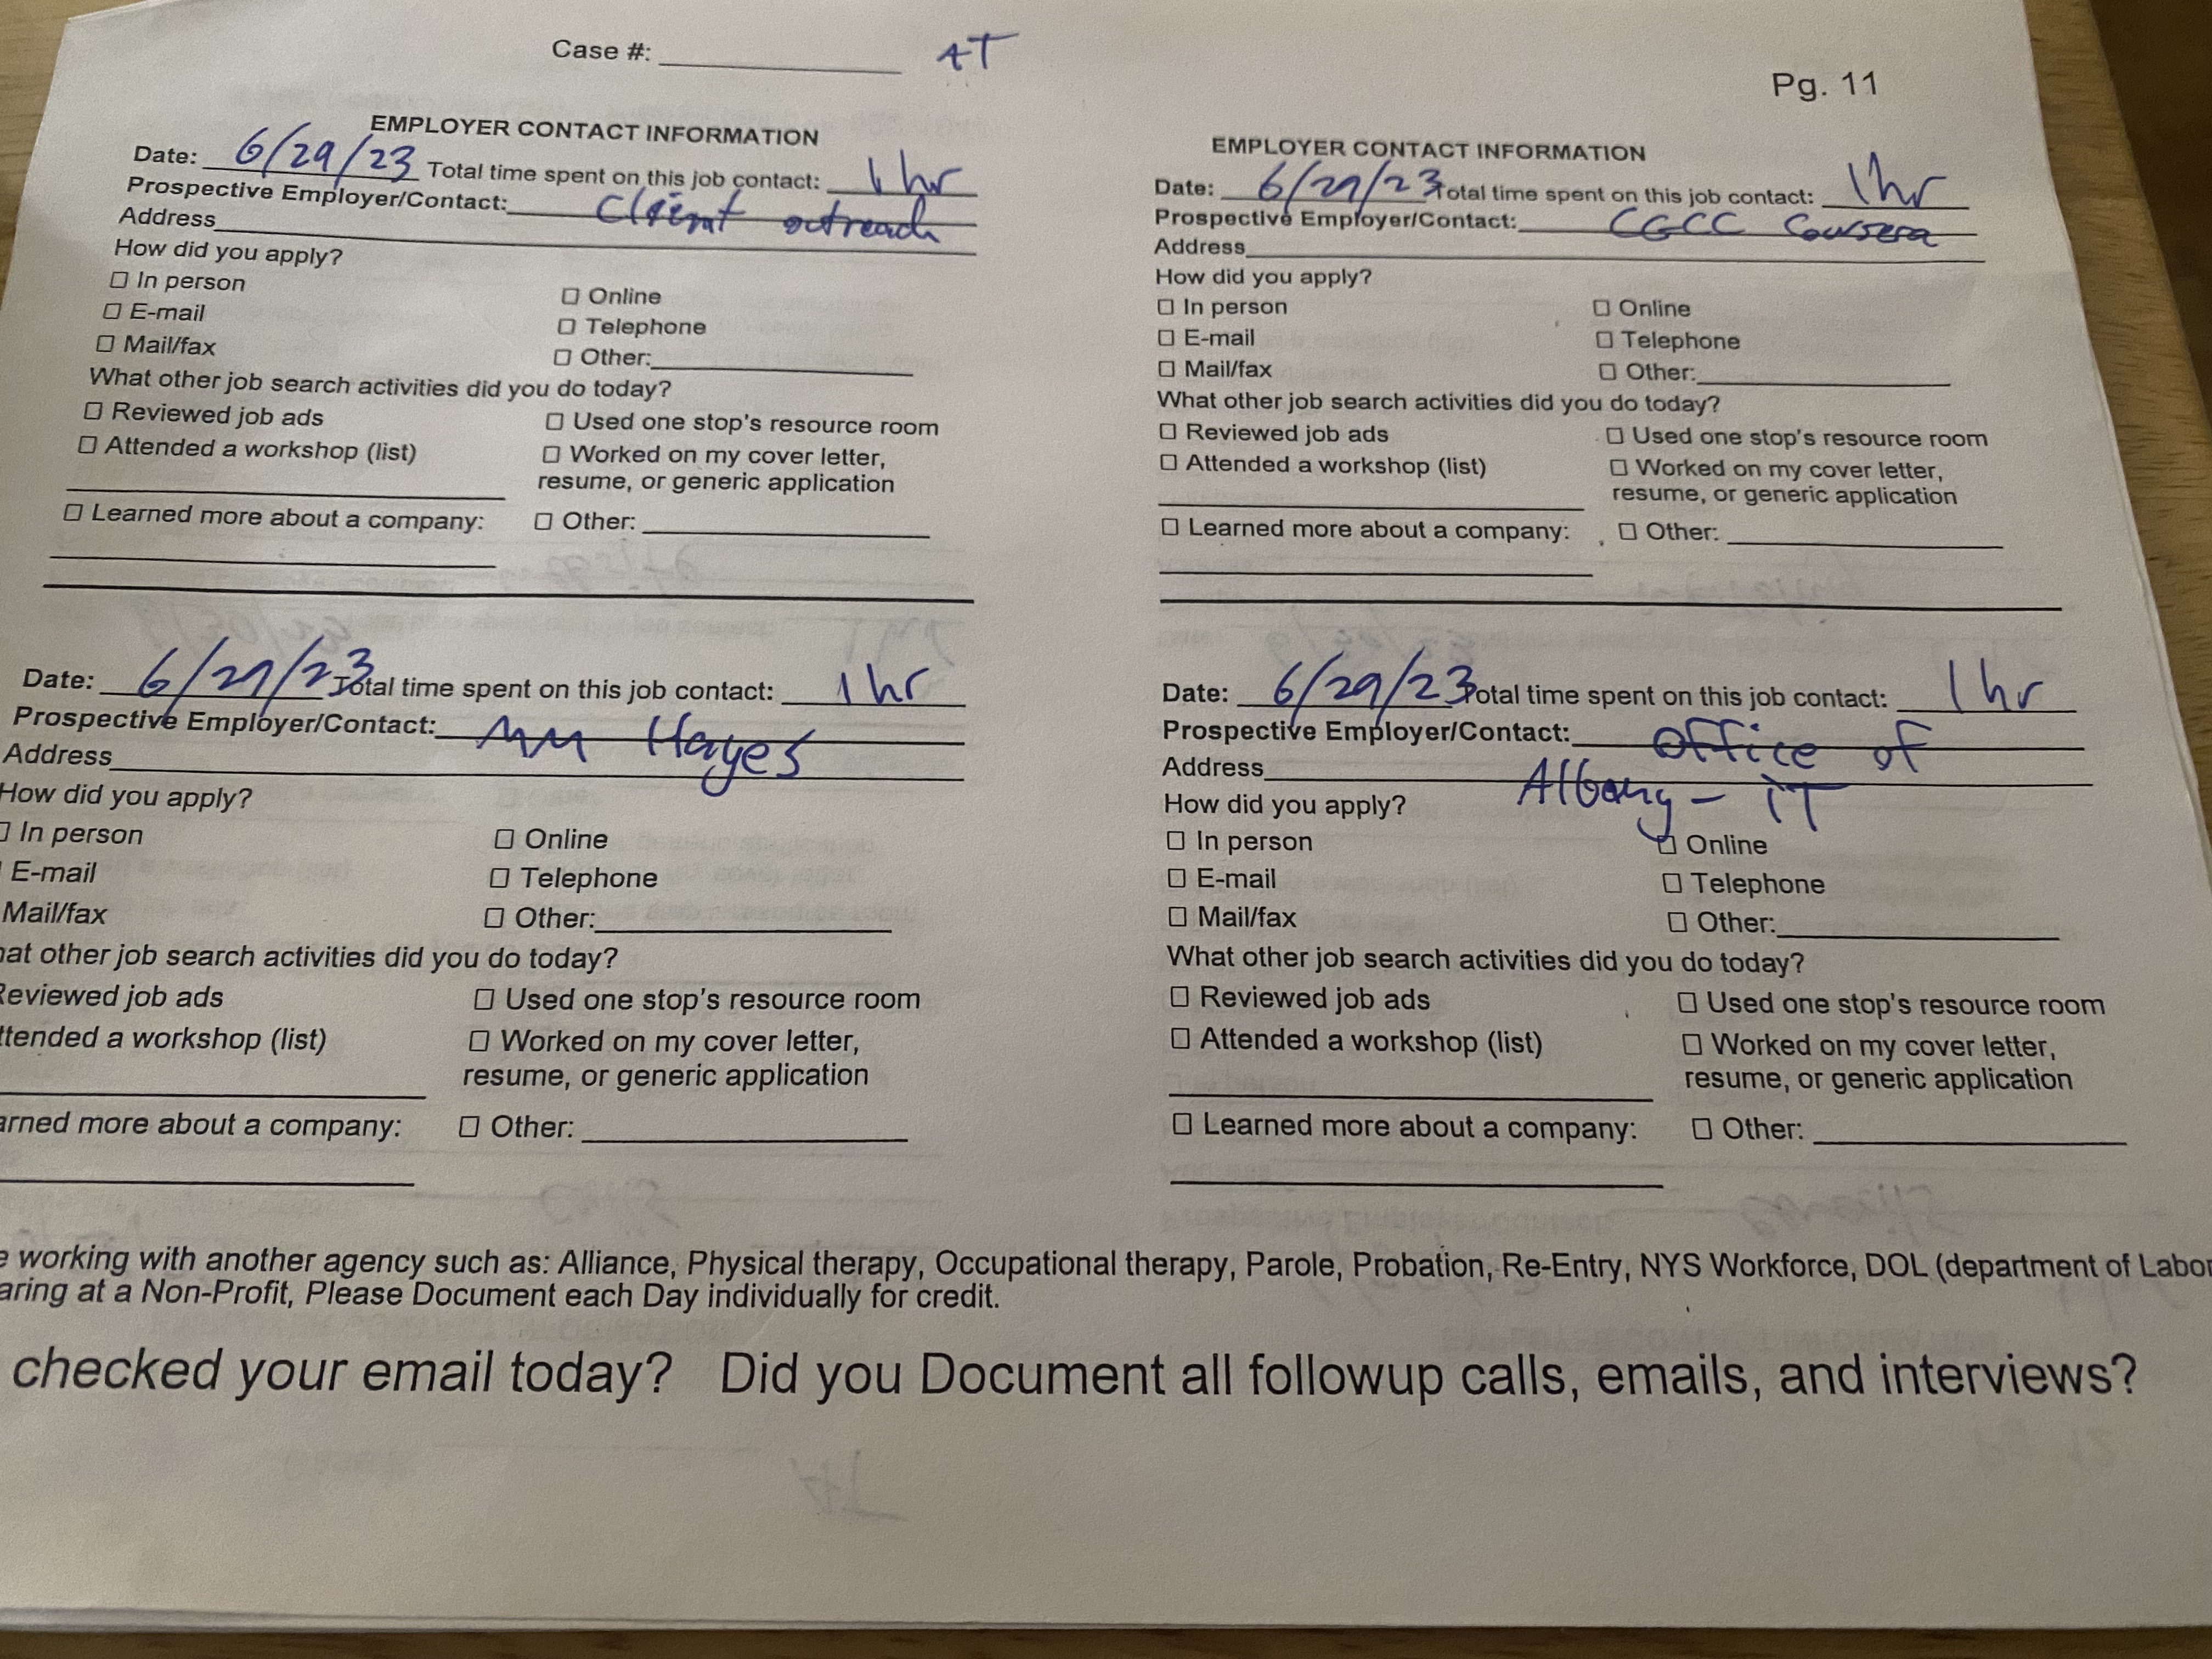 Case #: AT
Pg. 11
EMPLOYER CONTACT INFORMATION
Date: 6/29/23 Total time spent on this job contact: 1 hr
Prospective Employer/Contact: Client outreach
Address
How did you apply?
☐ In person ☐ Online
☐ E-mail ☐ Telephone
☐ Mail/fax ☐ Other:
What other job search activities did you do today?
☐ Reviewed job ads ☐ Used one stop's resource room
☐ Attended a workshop (list) ☐ Worked on my cover letter,
resume, or generic application
☐ Learned more about a company: ☐ Other:
EMPLOYER CONTACT INFORMATION
Date: 6/29/23 Total time spent on this job contact: 1hr
Prospective Employer/Contact: CGCC Coursera
Address
How did you apply?
☐ In person ☐ Online
☐ E-mail ☐ Telephone
☐ Mail/fax ☐ Other:
What other job search activities did you do today?
☐ Reviewed job ads ☐ Used one stop's resource room
☐ Attended a workshop (list) ☐ Worked on my cover letter,
resume, or generic application
☐ Learned more about a company: ☐ Other:
Date: 6/29/23 Total time spent on this job contact: 1 hr
Prospective Employer/Contact: MM Hayes
Address
How did you apply?
☐ In person ☐ Online
E-mail ☐ Telephone
Mail/fax ☐ Other:
hat other job search activities did you do today?
Reviewed job ads ☐ Used one stop's resource room
ttended a workshop (list) ☐ Worked on my cover letter,
resume, or generic application
arned more about a company: ☐ Other:
Date: 6/29/23 Total time spent on this job contact: 1 hr
Prospective Employer/Contact: Office of
Address
Albany - IT
How did you apply?
☐ In person ☐ Online
☐ E-mail ☐ Telephone
☐ Mail/fax ☐ Other:
What other job search activities did you do today?
☐ Reviewed job ads ☐ Used one stop's resource room
☐ Attended a workshop (list) ☐ Worked on my cover letter,
resume, or generic application
☐ Learned more about a company: ☐ Other:
e working with another agency such as: Alliance, Physical therapy, Occupational therapy, Parole, Probation, Re-Entry, NYS Workforce, DOL (department of Labor
aring at a Non-Profit, Please Document each Day individually for credit.
checked your email today? Did you Document all followup calls, emails, and interviews?